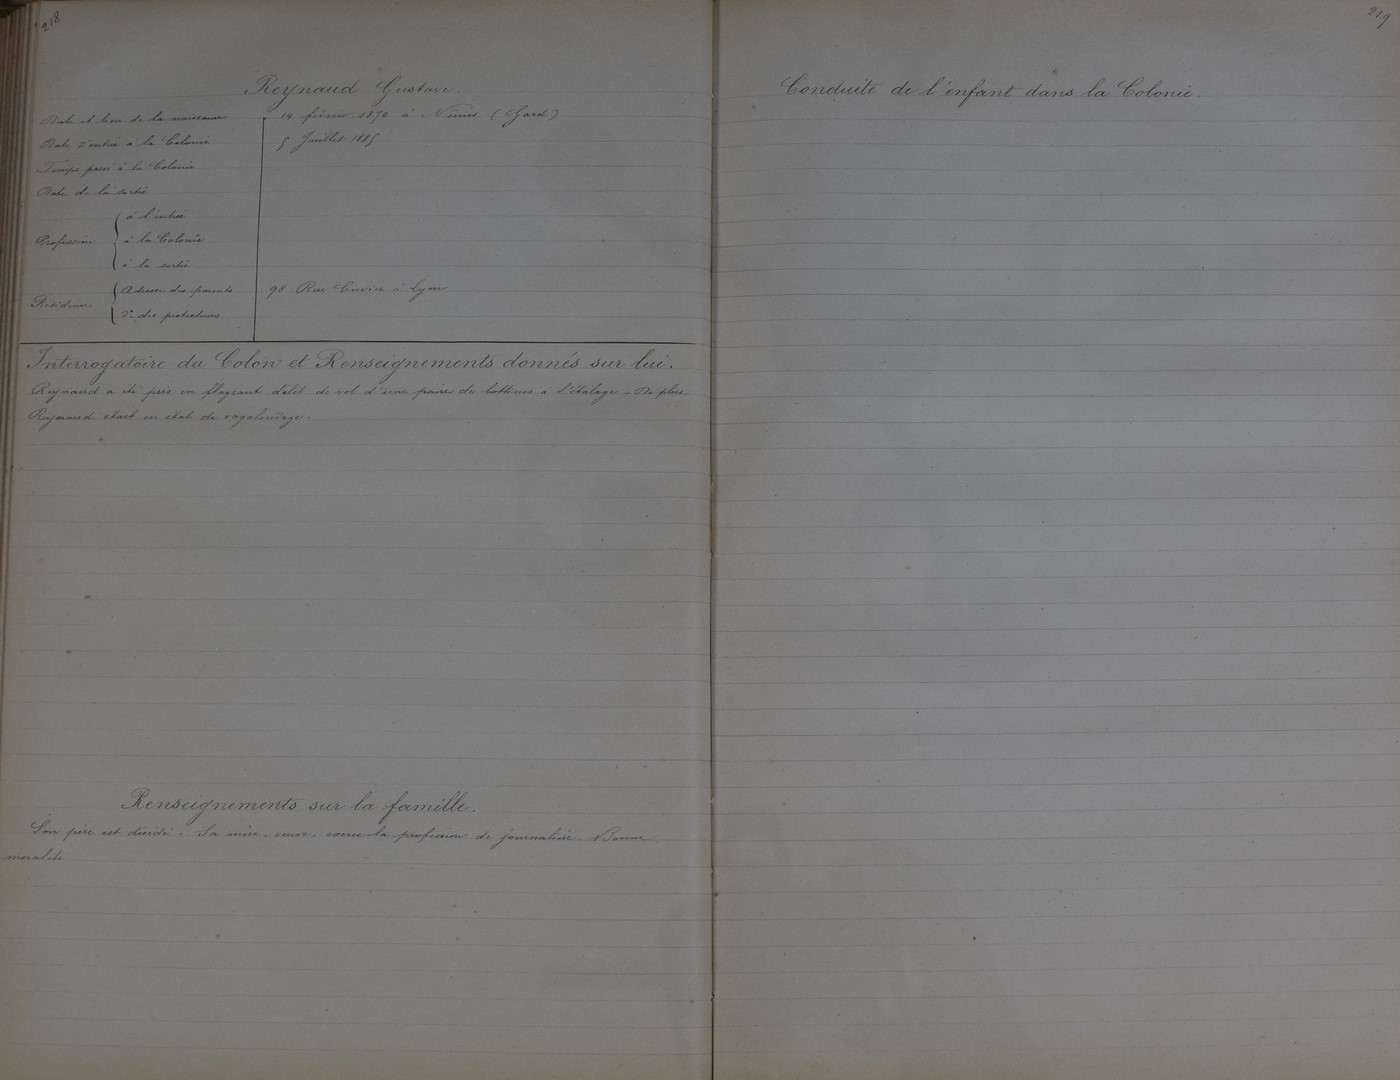 218
Reynaud Gustave.
Date et lieu de la naissance
14 février 1870 à Nîmes (Gard)
Date d'entrée à la Colonie
5 Juillet 1885
Temps passé à la Colonie
Date de la sortie
Profession
à l'entrée
à la Colonie
à la sortie
Résidence
Adresse des parents
98 Rue Cuvier à Lyon
d°. des protecteurs
Interrogatoire du Colon et Renseignements donnés sur lui.
Reynaud a été pris en flagrant délit de vol d'une paire de bottines à l'étalage - De plus,
Reynaud était en état de vagabondage.
Renseignements sur la famille.
Son père est décédé. Sa mère, veuve, exerce la profession de journalière. Bonne
moralité
219
Conduite de l'enfant dans la Colonie.